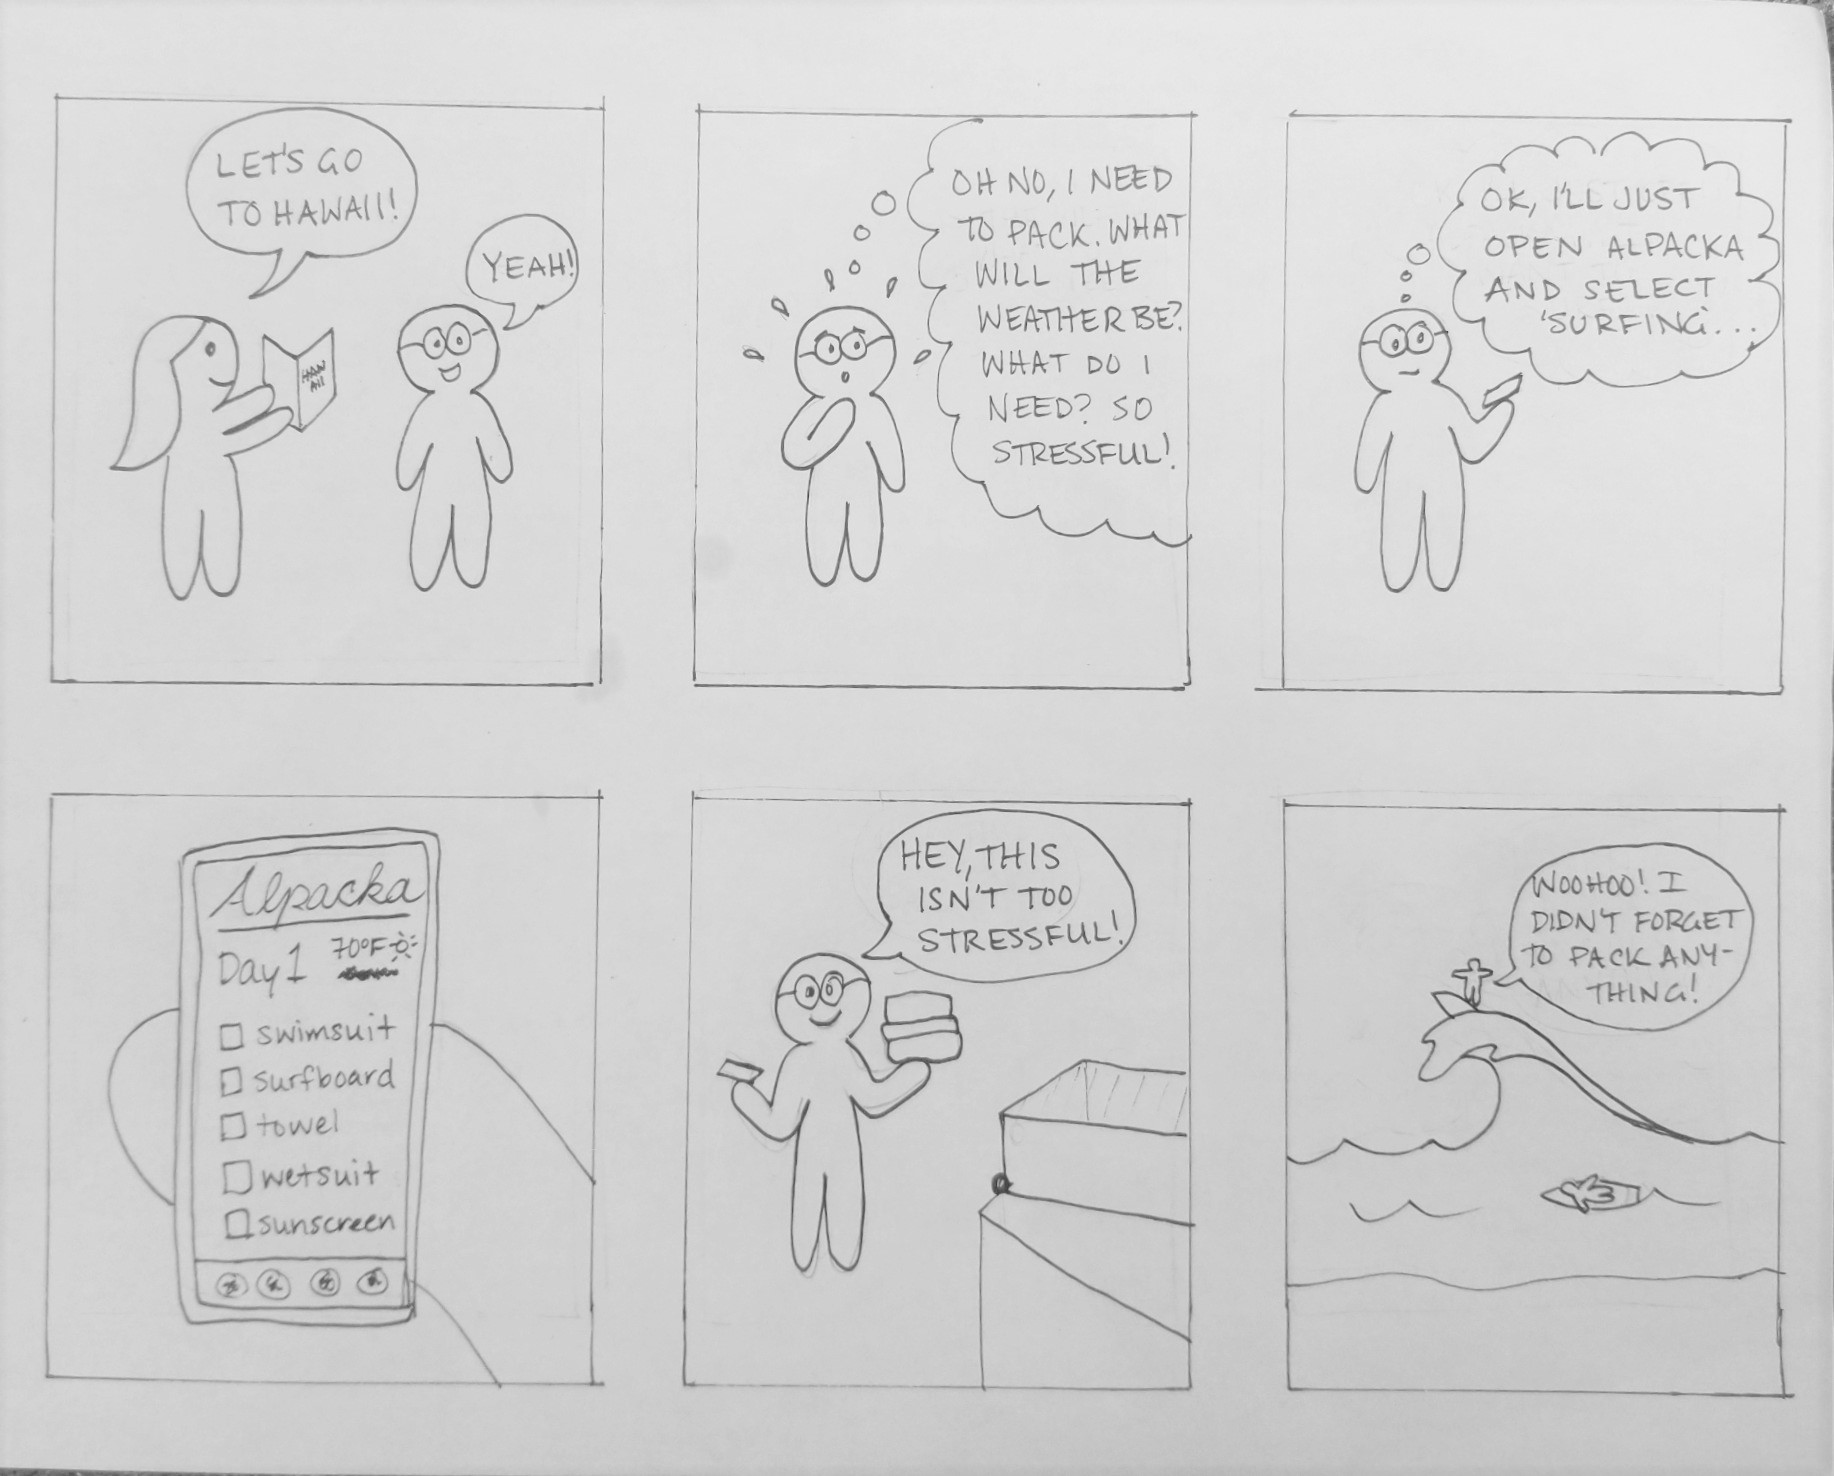 LET'S GO
TO HAWAII!
YEAH!
HAW
AII
OH NO, I NEED
TO PACK. WHAT
WILL THE
WEATHER BE?
WHAT DO I
NEED? SO
STRESSFUL!
OK, I'LL JUST
OPEN ALPACKA
AND SELECT
'SURFING...
Alpacka
Day 1 70°F
swimsuit
surfboard
towel
wetsuit
sunscreen
HEY, THIS
ISN'T TOO
STRESSFUL!
WOOHOO! I
DIDN'T FORGET
TO PACK ANY-
THING!